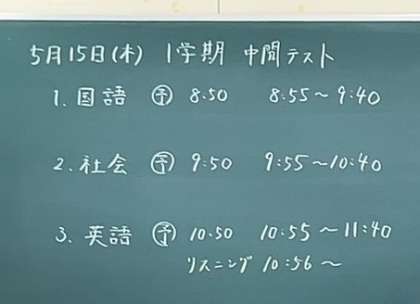 5月15日(木) 1学期 中間テスト
1. 国語 ㋵ 8.50 8:55～9:40
2. 社会 ㋵ 9:50 9:55～10:40
3. 英語 ㋵ 10.50 10:55～11:40
リスニング 10:56～